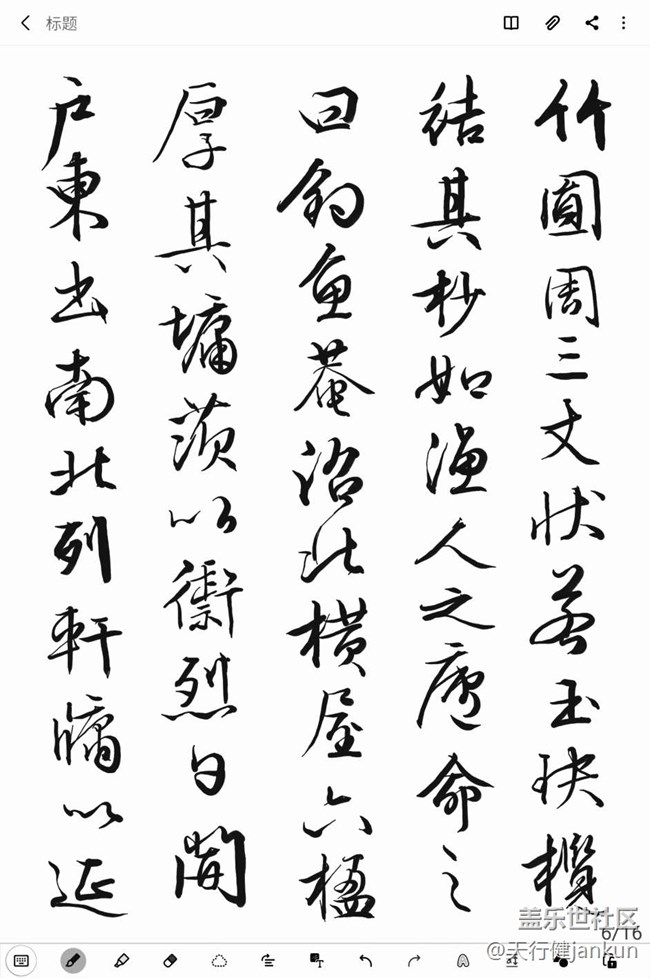 标题
竹圓周三丈狀若玉玦攬
結其杪如漁人之廬命之
曰釣魚菴沼北橫屋六楹
厚其墉茨以禦烈日開
戶東出南北列軒牖以延
盖乐世社区
6/16
@天行健jankun